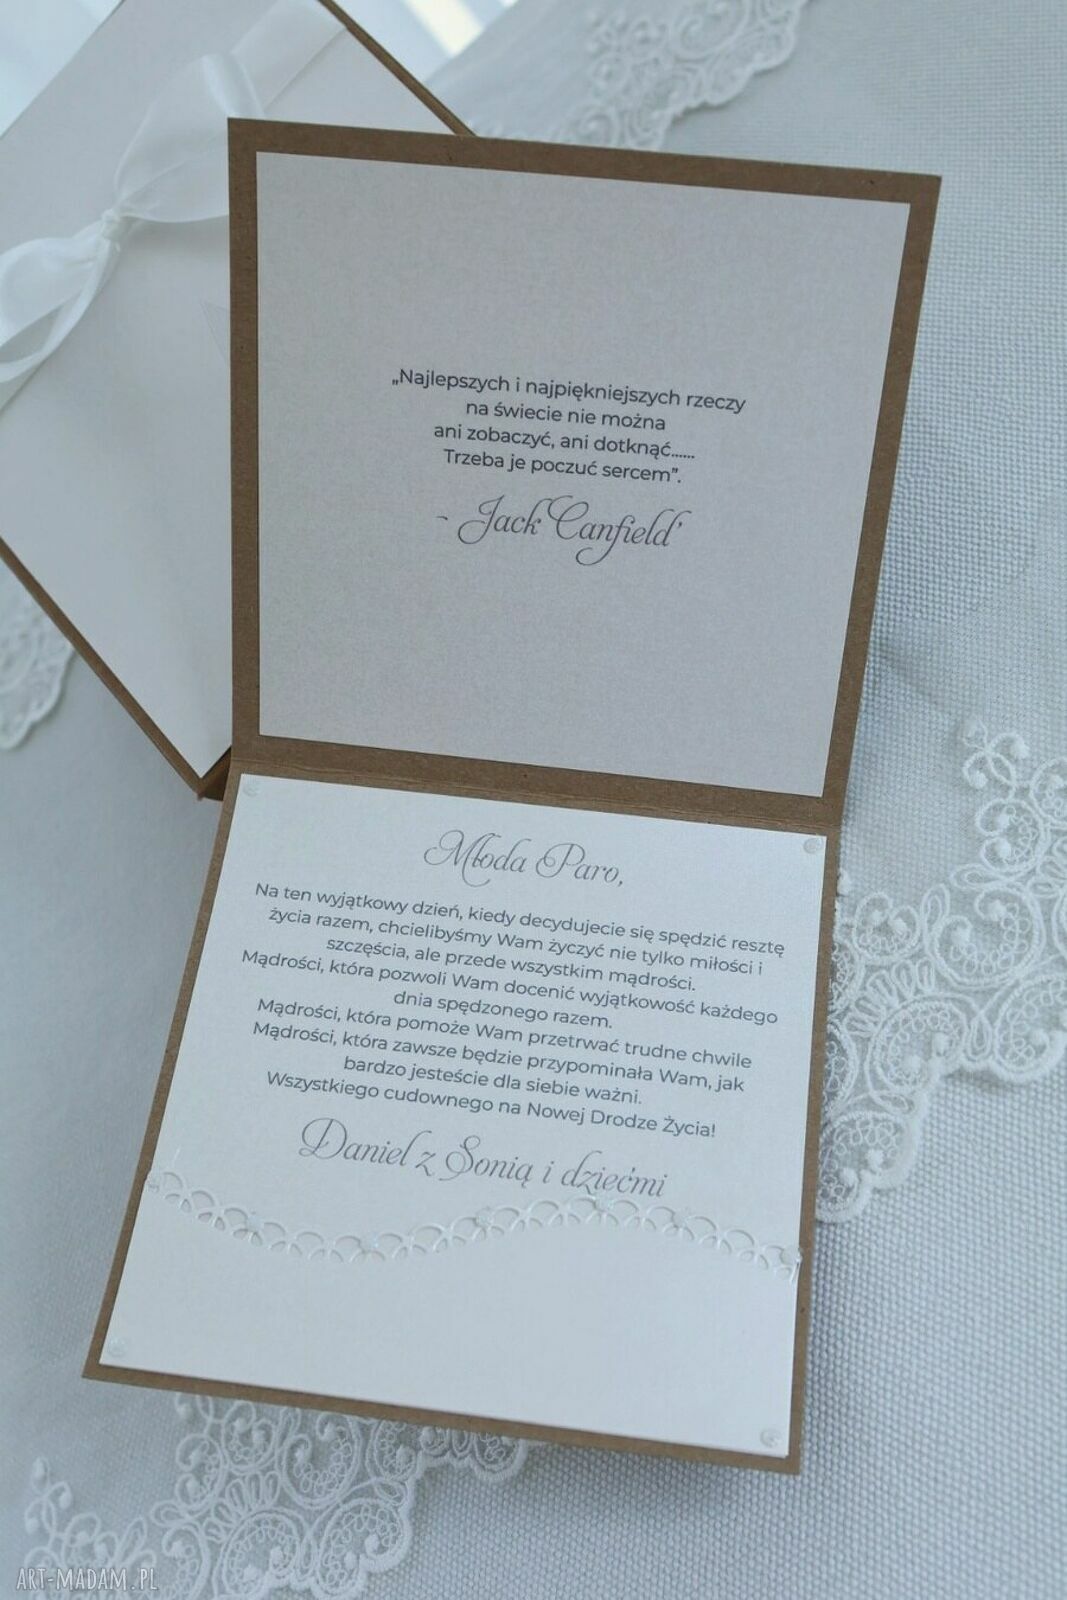 „Najlepszych i najpiękniejszych rzeczy
na świecie nie można
ani zobaczyć, ani dotknąć......
Trzeba je poczuć sercem”.
- Jack Canfield
Młoda Paro,
Na ten wyjątkowy dzień, kiedy decydujecie się spędzić resztę
życia razem, chcielibyśmy Wam życzyć nie tylko miłości i
szczęścia, ale przede wszystkim mądrości.
Mądrości, która pozwoli Wam docenić wyjątkowość każdego
dnia spędzonego razem.
Mądrości, która pomoże Wam przetrwać trudne chwile
Mądrości, która zawsze będzie przypominała Wam, jak
bardzo jesteście dla siebie ważni.
Wszystkiego cudownego na Nowej Drodze Życia!
Daniel z Sonią i dziećmi
ART-MADAM.PL